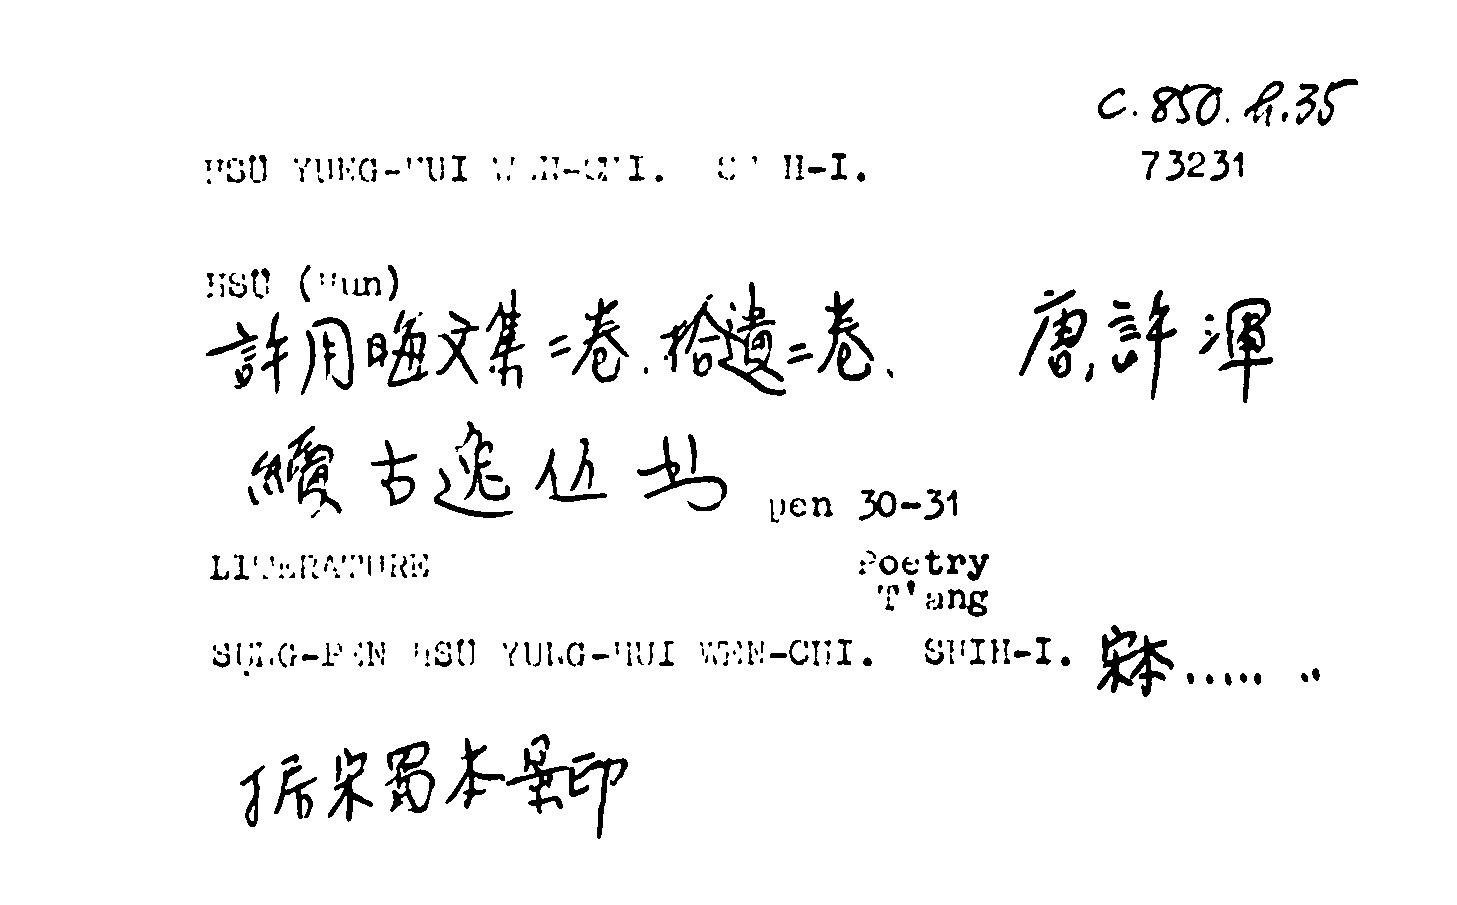 C. 850. h. 35
HSÜ YUNG-HUI WEN-CHI. SHIH-I. 73231
HSÜ (Hun)
許用晦文集二卷.拾遺二卷. 唐,許渾
續古逸丛书 pen 30-31
LITERATURE Poetry
T'ang
SUNG-PEN HSÜ YUNG-HUI WEN-CHI. SHIH-I. 宋本.......
据宋蜀本景印